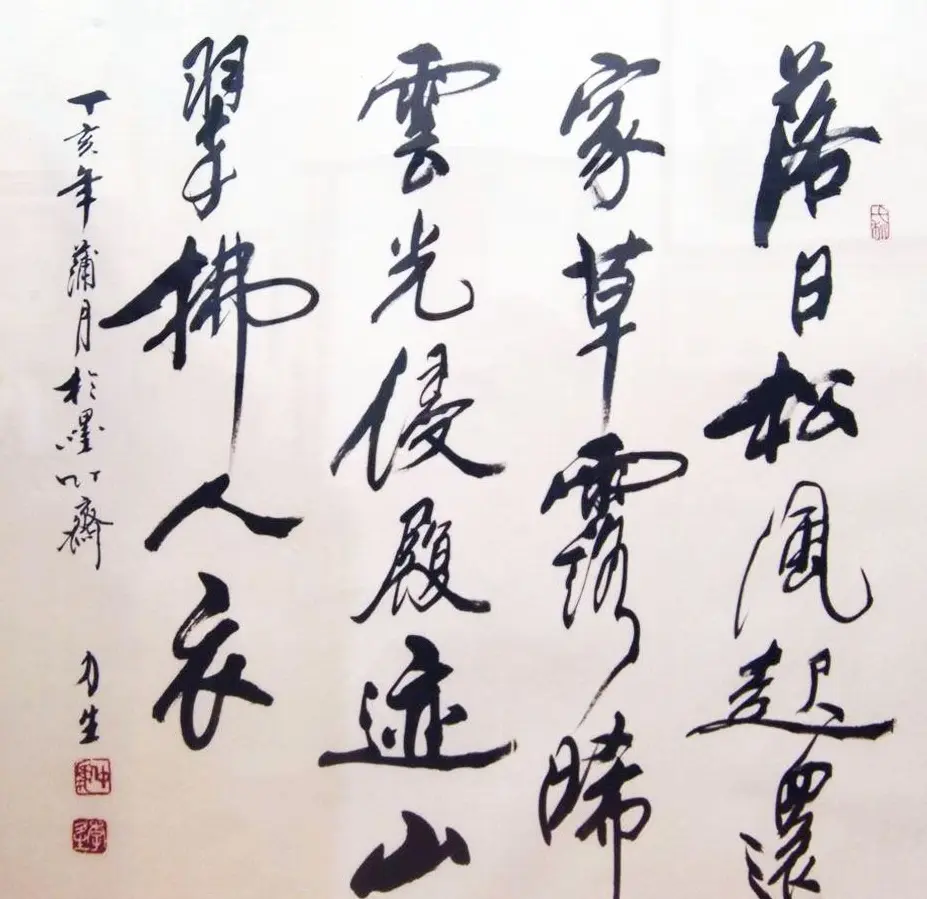 落日松風起還
家草露晞
雲光侵履迹山
翠拂人衣
丁亥年蒲月於墨竹齋 力生